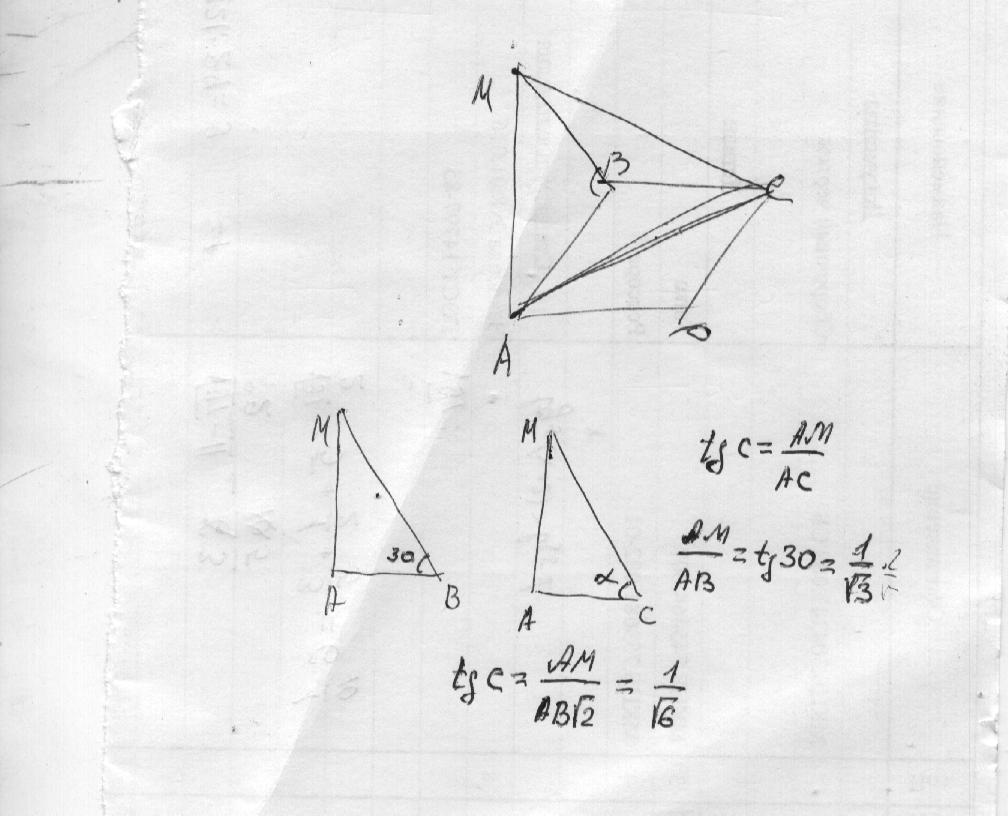 M
B
C
A
D
M
30
A
B
M
α
A
C
tg C = AM/AC
AM/AB = tg 30 = 1/√3
tg C = AM/(AB√2) = 1/√6